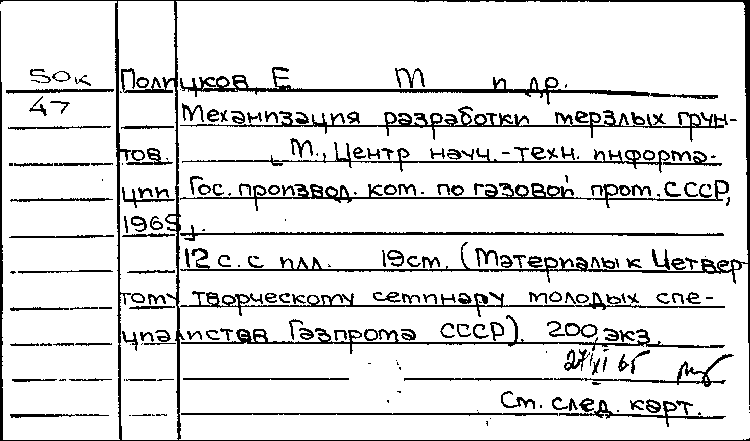 50к Полицков, Е М и др.
47 Механизация разработки мерзлых грун-
тов. [М., Центр науч.-техн. информа-
ции Гос. производ. ком. по газовой пром. СССР,
1965].
12 с. с илл. 19 см. (Материалы к Четвер-
тому творческому семинару молодых спе-
циалистов Газпрома СССР). 200 экз.
27/XI 65
См. след. карт.